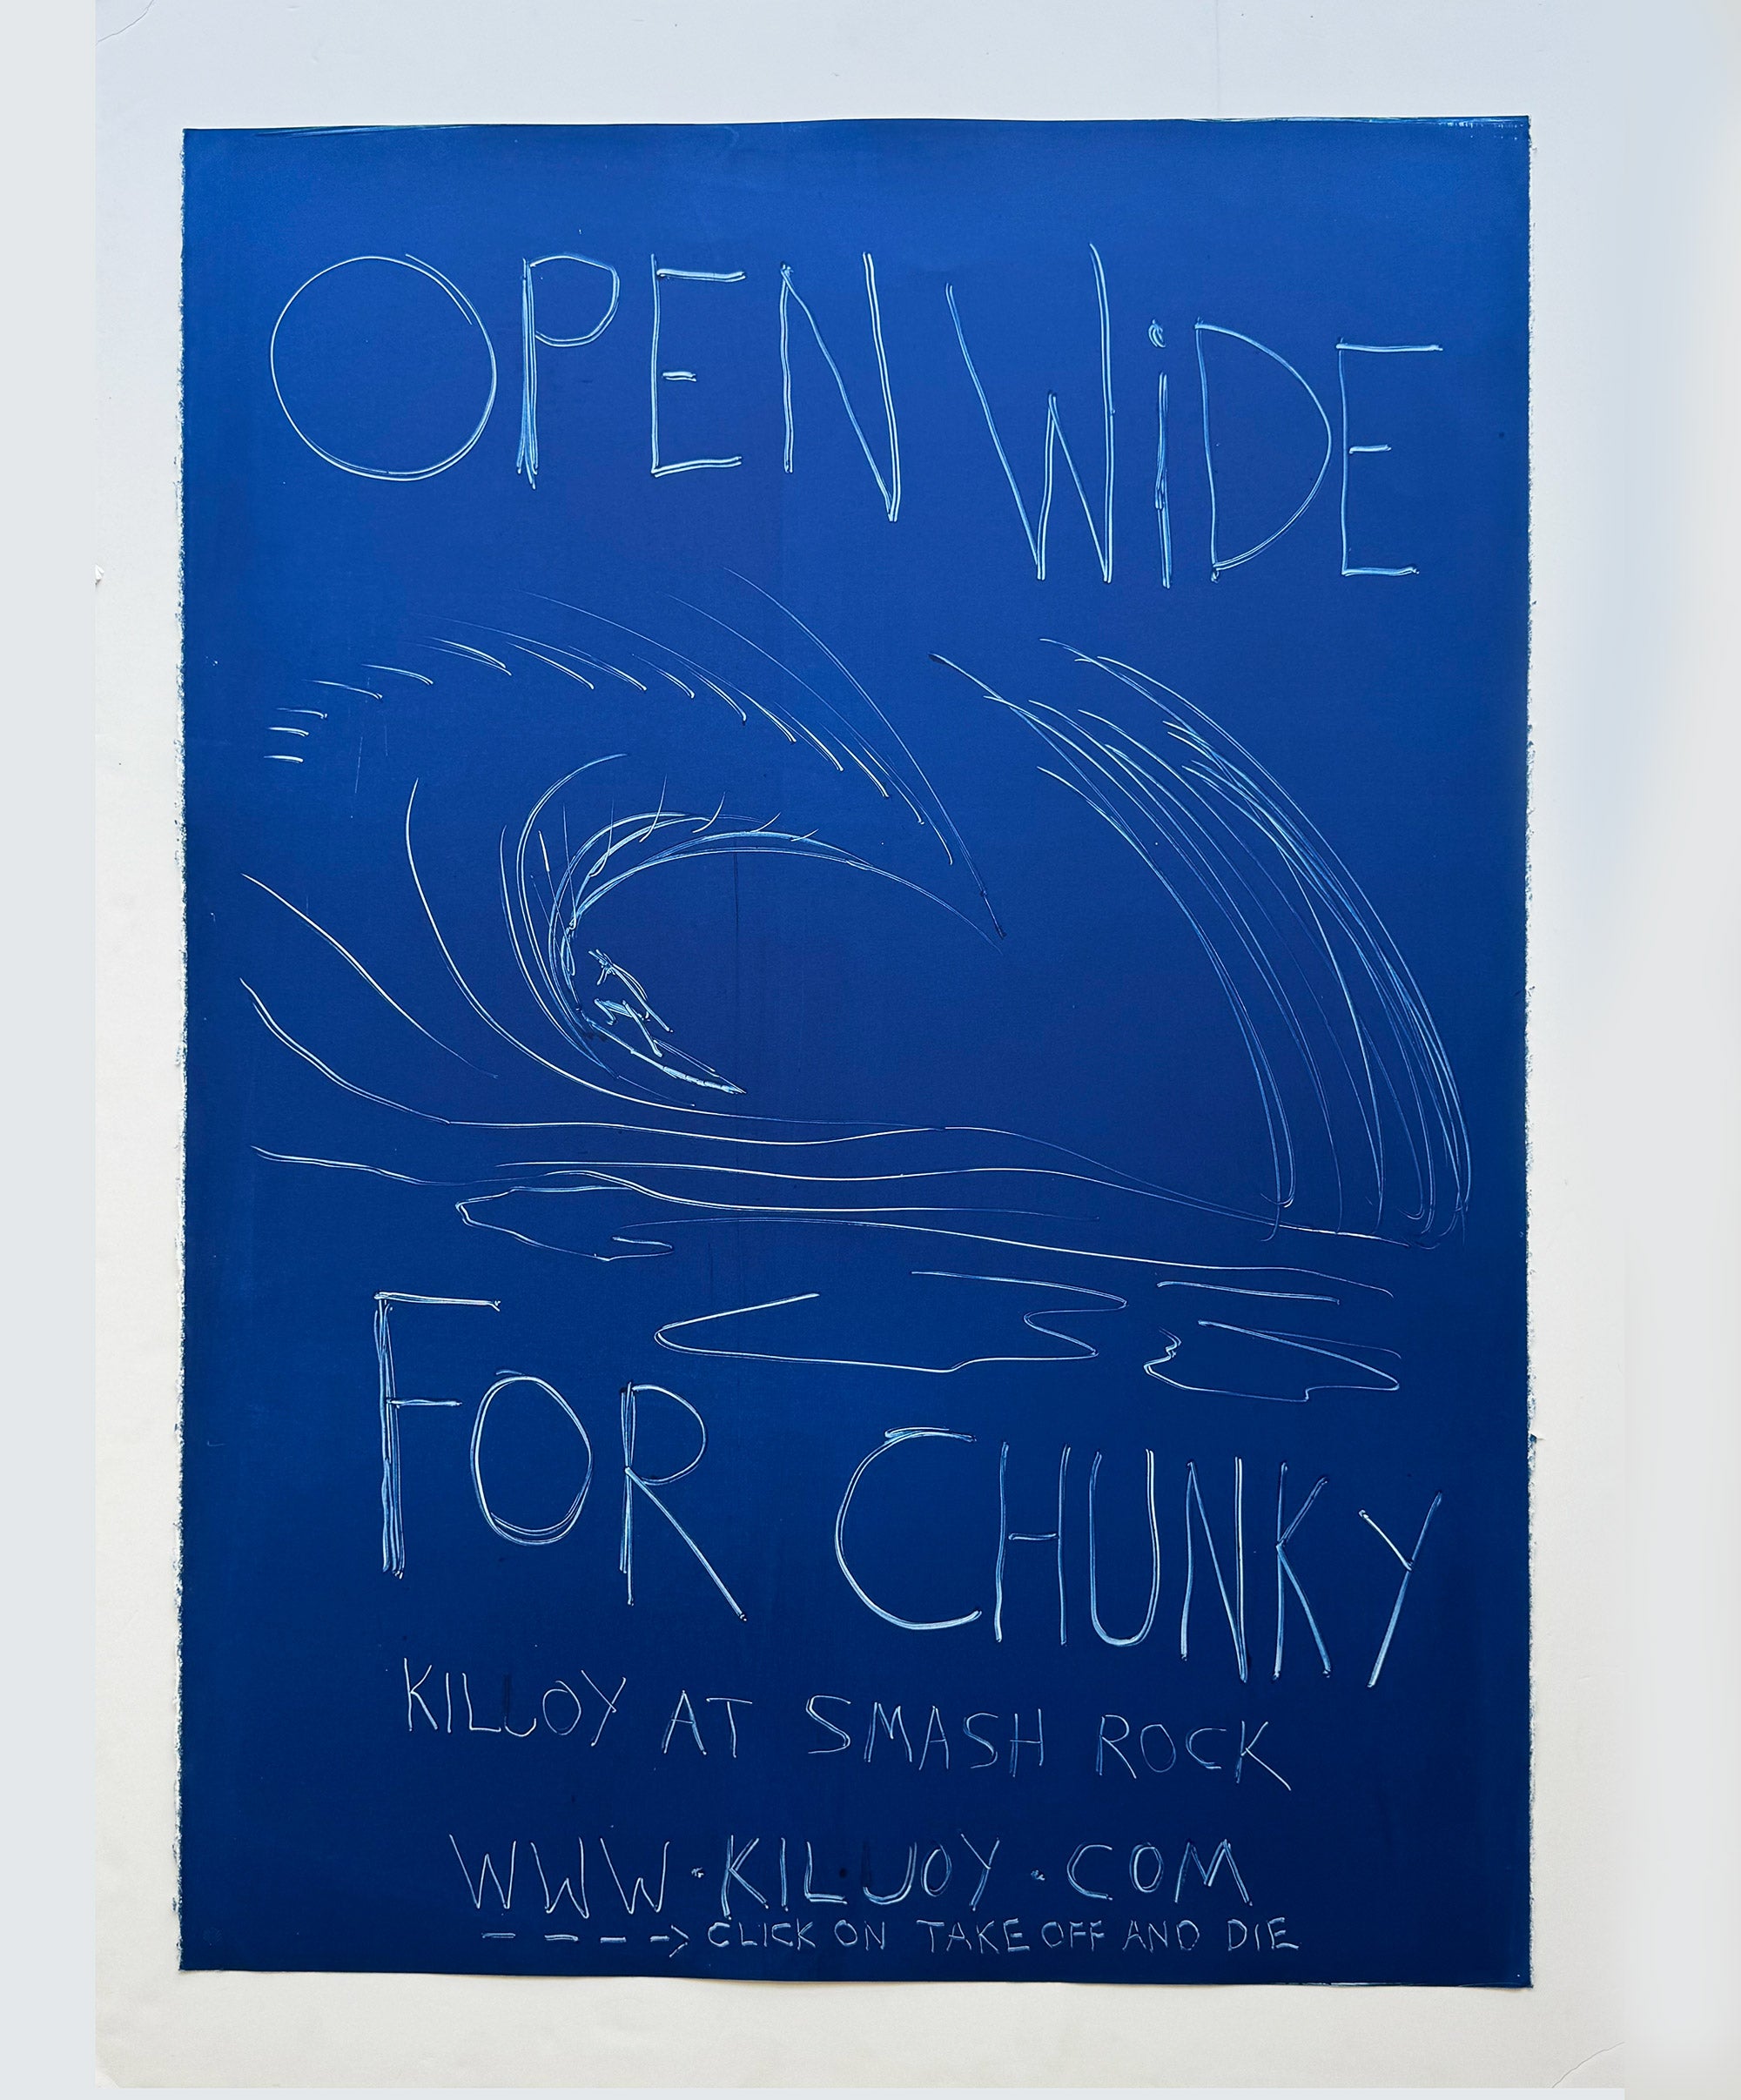 OPEN WiDE
FOR CHUNKY
KILLOY AT SMASH ROCK
WWW.KILJOY.COM
----> CLICK ON TAKE OFF AND DIE